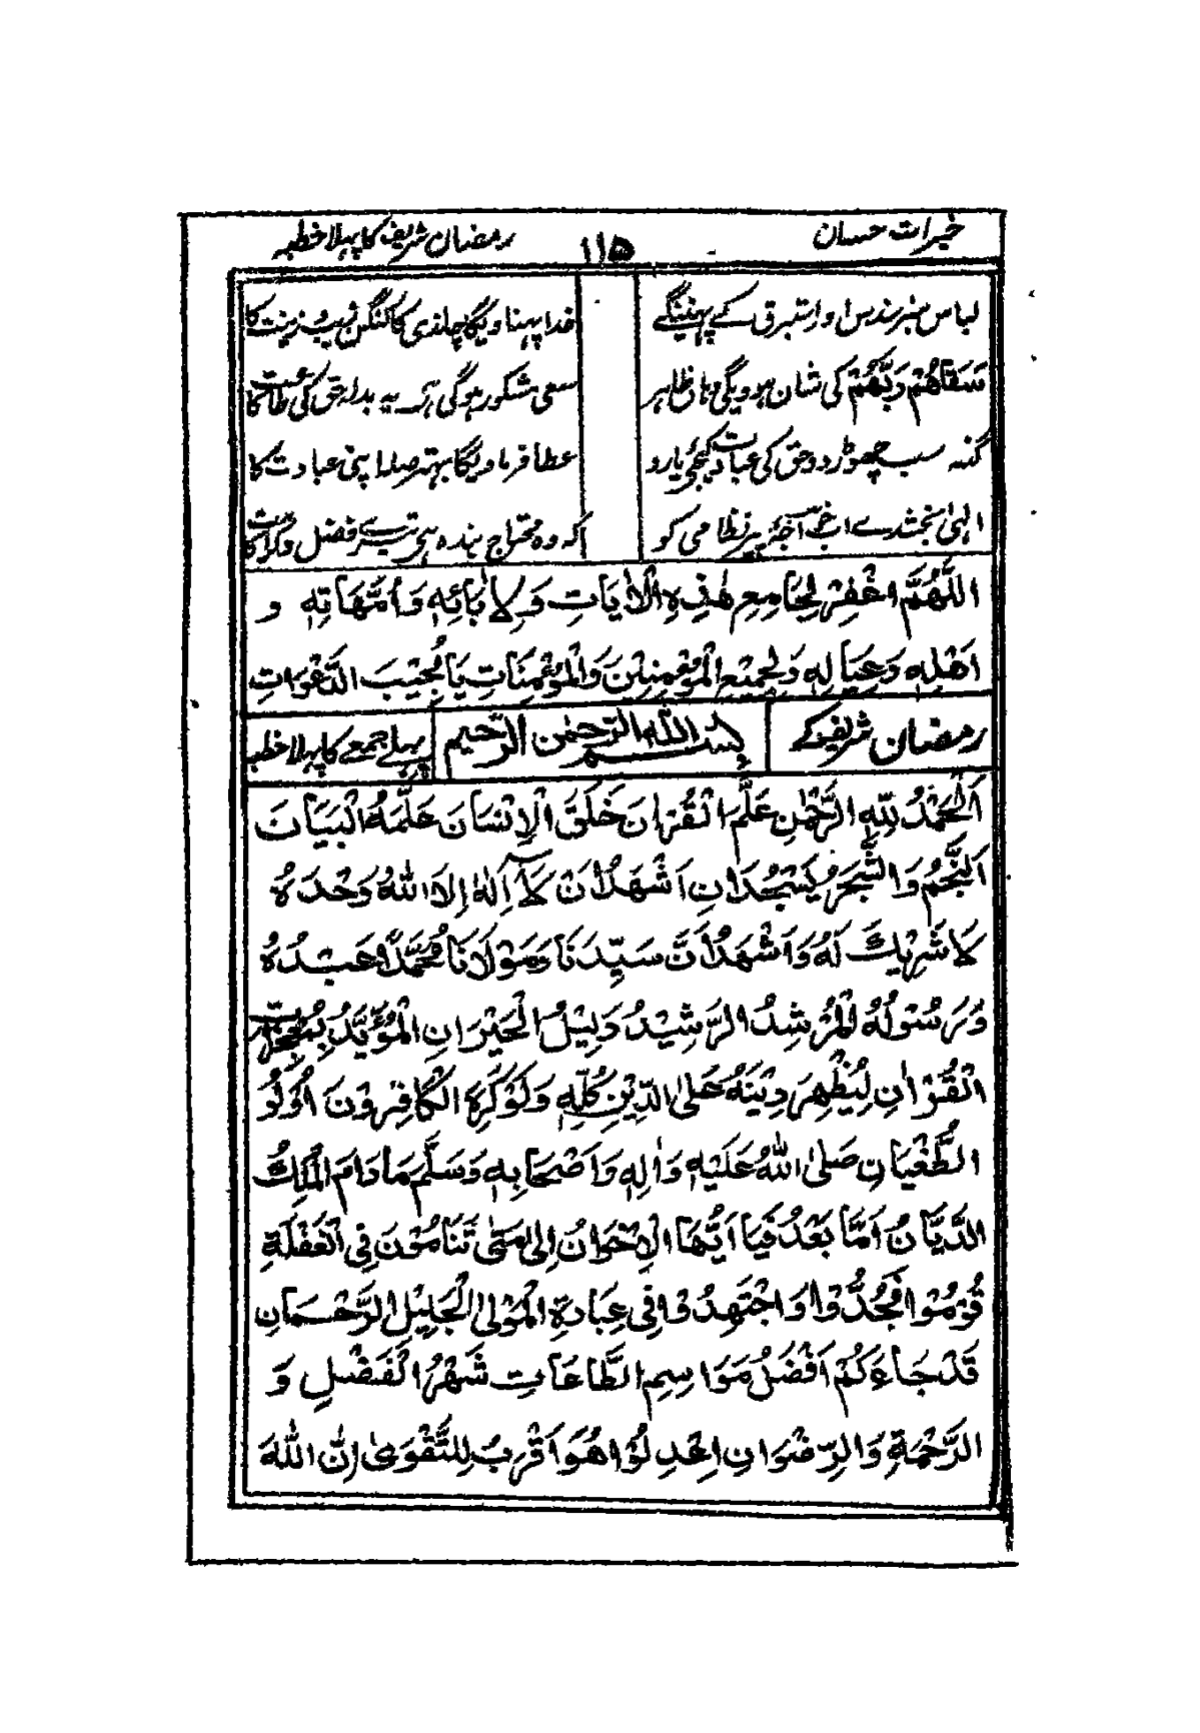 خیرات حسان ۱۱۵ رمضان شریف کا پہلا خطبہ
لباس سبز سندس اور استبرق کے پہنینگے خدا پہناویگا چاندی کا کنگن زیب و زینت کا
سَقَاهُمْ رَبُّهُمْ کی شان ہوویگی وہاں ظاہر سعی مشکور ہوگی ہے یہ بدلہ حق کی طاعت کا
گنہ سب چھوڑ دو حق کی عبادت کیجئے یارو عطا فرماویگا بہتر صلہ اپنی عبادت کا
الہیٰ بخشدے اب نظامی کو کہ وہ محتاج بندہ ہے تیرے فضل و کرامت کا
اَللّٰهُمَّ اغْفِرْ لِجَامِعِ هٰذِهِ الْاٰيَاتِ وَلِاٰبَائِهٖ وَاُمَّهَاتِهٖ وَ
اَهْلِهٖ وَعِيَالِهٖ وَلِجَمِيْعِ الْمُؤْمِنِيْنَ وَالْمُؤْمِنَاتِ يَا مُجِيْبَ الدَّعْوَاتِ
رمضان شریف کے بِسْمِ اللّٰهِ الرَّحْمٰنِ الرَّحِيْمِ پہلے جمعے کا پہلا خطبہ
اَلْحَمْدُ لِلّٰهِ الرَّحْمٰنِ عَلَّمَ الْقُرْاٰنَ خَلَقَ الْاِنْسَانَ عَلَّمَهُ الْبَيَانَ
اَلنَّجْمُ وَالشَّجَرُ يَسْجُدَانِ اَشْهَدُ اَنْ لَآ اِلٰهَ اِلَّا اللّٰهُ وَحْدَهُ
لَا شَرِيْكَ لَهُ وَاَشْهَدُ اَنَّ سَيِّدَنَا وَمَوْلَانَا مُحَمَّدًا عَبْدُهُ
وَرَسُوْلُهُ الْمُرْشِدُ الرَّشِيْدُ دَلِيْلُ الْحَيْرَانِ الْمُؤَيَّدُ بِمُعْجِزَاتِ
الْقُرْاٰنِ لِيُظْهِرَ دِيْنَهُ عَلَى الدِّيْنِ كُلِّهٖ وَلَوْ كَرِهَ الْكَافِرُوْنَ اُولُو
الطُّغْيَانِ صَلَّى اللّٰهُ عَلَيْهِ وَاٰلِهٖ وَاَصْحَابِهٖ وَسَلَّمَ مَا دَامَ الْمَلِكُ
الدَّيَّانُ اَمَّا بَعْدُ فَيَا اَيُّهَا الْاِخْوَانُ اِلٰى مَتٰى تَنَامُوْنَ فِى الْغَفْلَةِ
قُوْمُوْا فَجُدُّوْا وَاجْتَهِدُوْا فِى عِبَادَةِ الْمَوْلٰى الْجَلِيْلِ الرَّحْمَانِ
قَدْ جَاءَكُمْ اَفْضَلُ مَوَاسِمِ الطَّاعَاتِ شَهْرُ الْفَضْلِ وَ
الرَّحْمَةِ وَالرِّضْوَانِ اِعْدِلُوْا هُوَ اَقْرَبُ لِلتَّقْوٰى اِنَّ اللّٰهَ